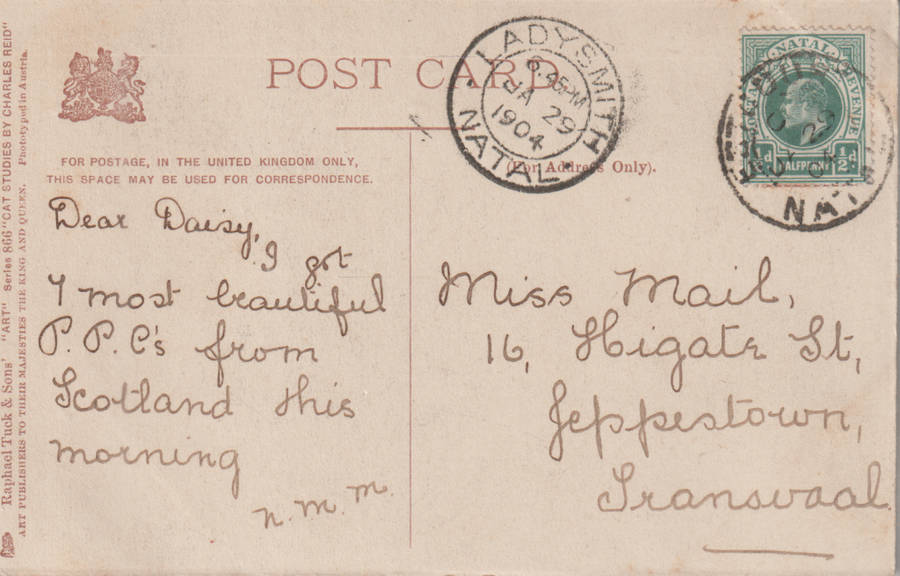 Raphael Tuck & Sons' "ART" Series 866 "CAT STUDIES BY CHARLES REID"
ART PUBLISHERS TO THEIR MAJESTIES THE KING AND QUEEN. Phototyped in Austria.
POST CARD
FOR POSTAGE, IN THE UNITED KINGDOM ONLY,
THIS SPACE MAY BE USED FOR CORRESPONDENCE.
(For Address Only).
LADYSMITH
6.45PM
JA 29
1904
NATAL
NATAL
POSTAGE REVENUE
½d HALFPENNY ½d
29
NAT
Dear Daisy,
I got
7 most beautiful
P.P.C's from
Scotland this
morning
n.m.m.
Miss Mail,
16, Higate St,
Jeppestown,
Transvaal